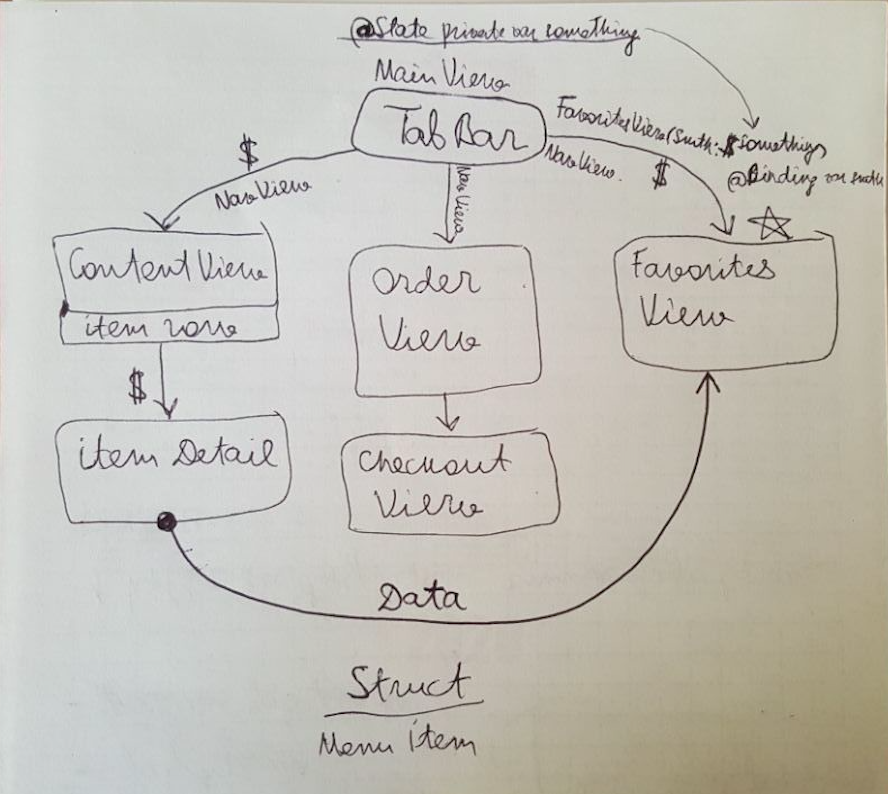 @State private var something
Main View
Tab Bar
FavoritesView(smth: $something
@Binding var smth
$
Nav View
Nav View
Nav View.
$
Content View
item row
Order
View
Favorites
View
$
item Detail
Checkout
View
Data
Struct
Menu item